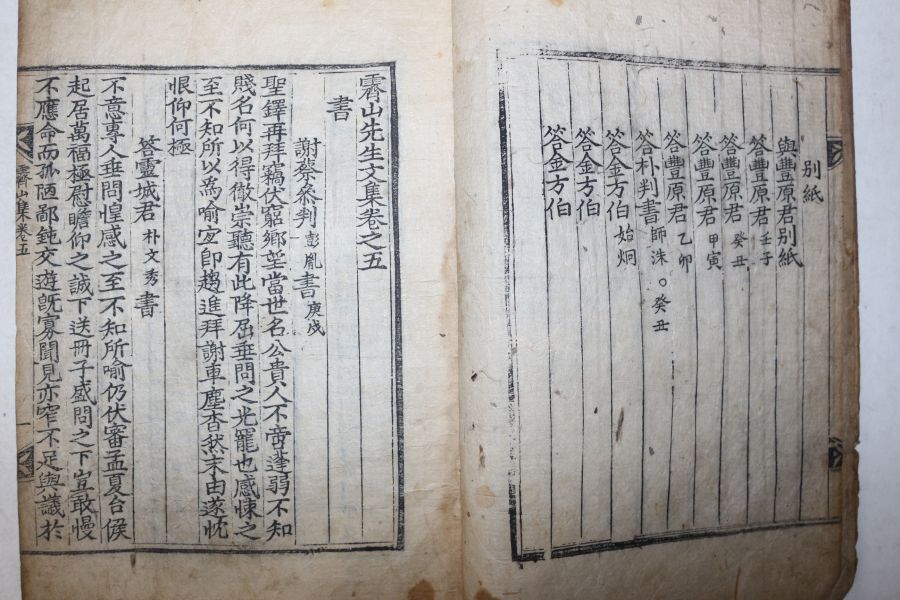 別紙
與豐原君別紙
答豐原君壬子
答豐原君癸丑
答豐原君甲寅
答豐原君乙卯
答朴判書師洙○癸丑
答金方伯始炯
答金方伯
答金方伯
霽山先生文集卷之五
書
謝蔡叅判彭胤書庚戌
聖鐸再拜竊伏窮鄉並當世名公貴人不啻蓬弱不知
賤名何以得徹崇聽有此降屈垂問之光寵也感悚之
至不知所以爲喻宜卽趨進拜謝車塵杳然末由遂忱
恨仰何極
答靈城君朴文秀書
不意專人垂問惶感之至不知所喻仍伏審孟夏台候
起居萬福極慰瞻仰之誠下送冊子盛問之下豈敢慢
不應命而孤陋鄙鈍交遊旣寡聞見亦窄不足與議於
霽山集卷五
一